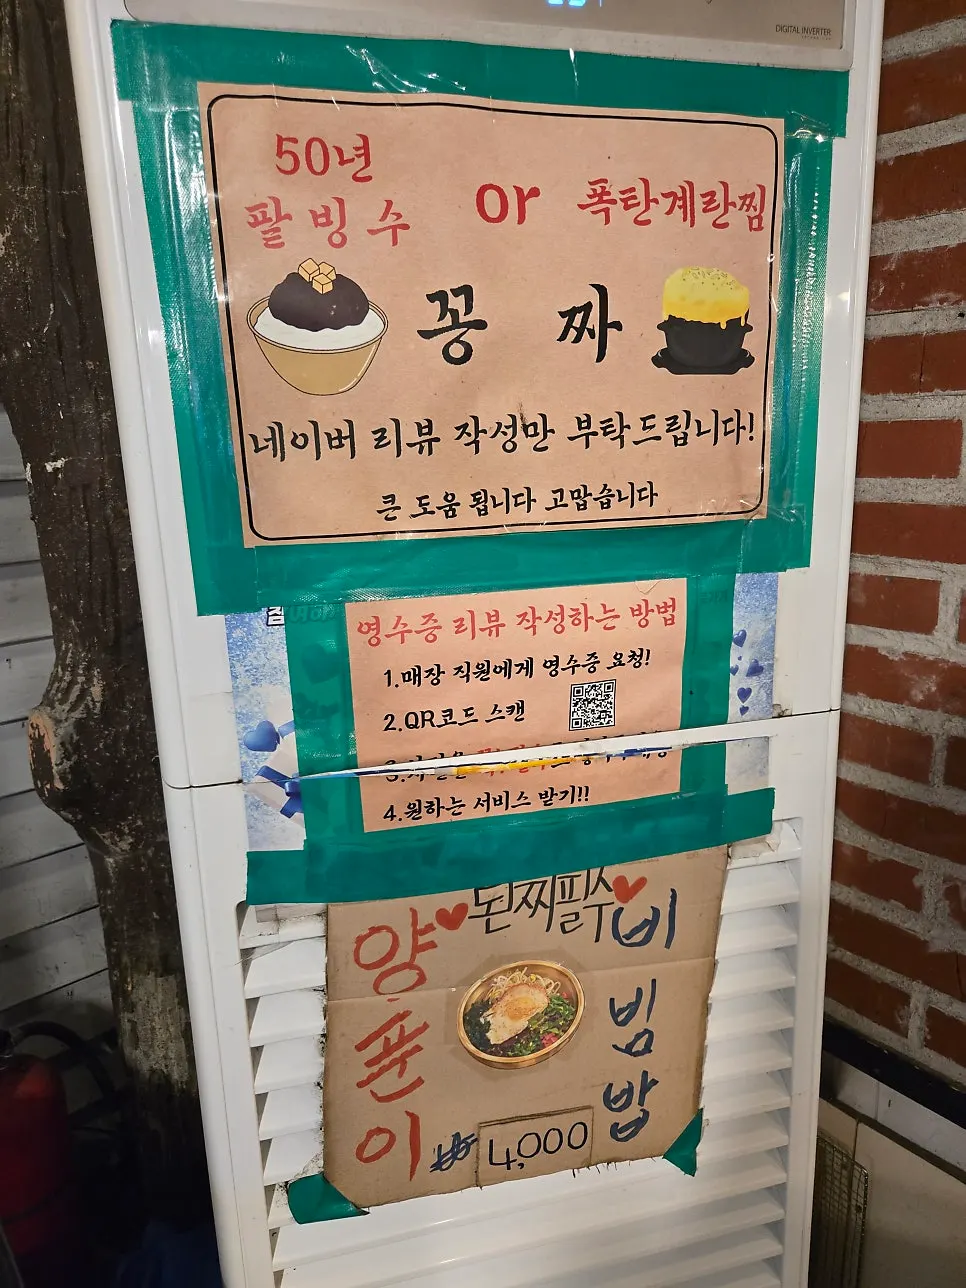 DIGITAL INVERTER
50년
팥빙수 or 폭탄계란찜
꽁짜
네이버 리뷰 작성만 부탁드립니다!
큰 도움 됩니다 고맙습니다
영수증 리뷰 작성하는 방법
1.매장 직원에게 영수증 요청!
2.QR코드 스캔
4.원하는 서비스 받기!!
된찌필수
양푼이
비빔밥
₩ 4,000